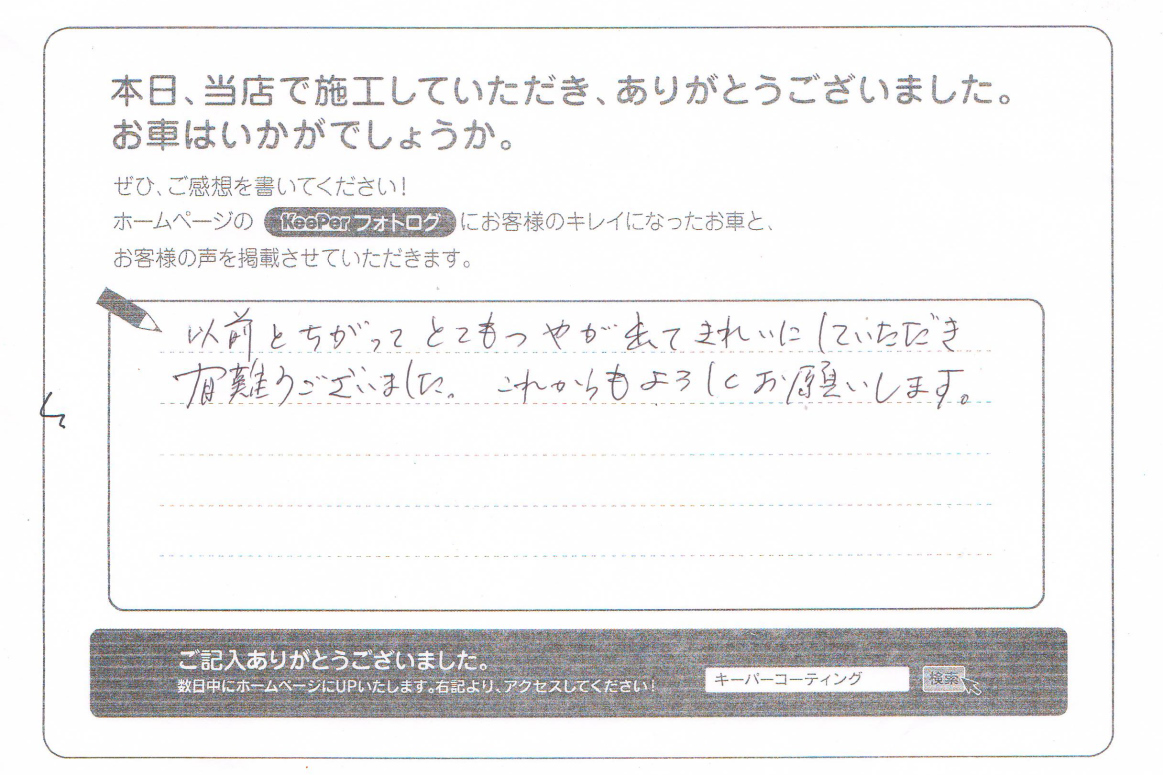 本日、当店で施工していただき、ありがとうございました。
お車はいかがでしょうか。
ぜひ、ご感想を書いてください！
ホームページの KeePer フォトログ にお客様のキレイになったお車と、
お客様の声を掲載させていただきます。
以前とちがってとてもつやが出てきれいにしていただき
有難うございました。これからもよろしくお願いします。
ご記入ありがとうございました。
数日中にホームページにUPいたします。右記より、アクセスしてください！
キーパーコーティング 検索